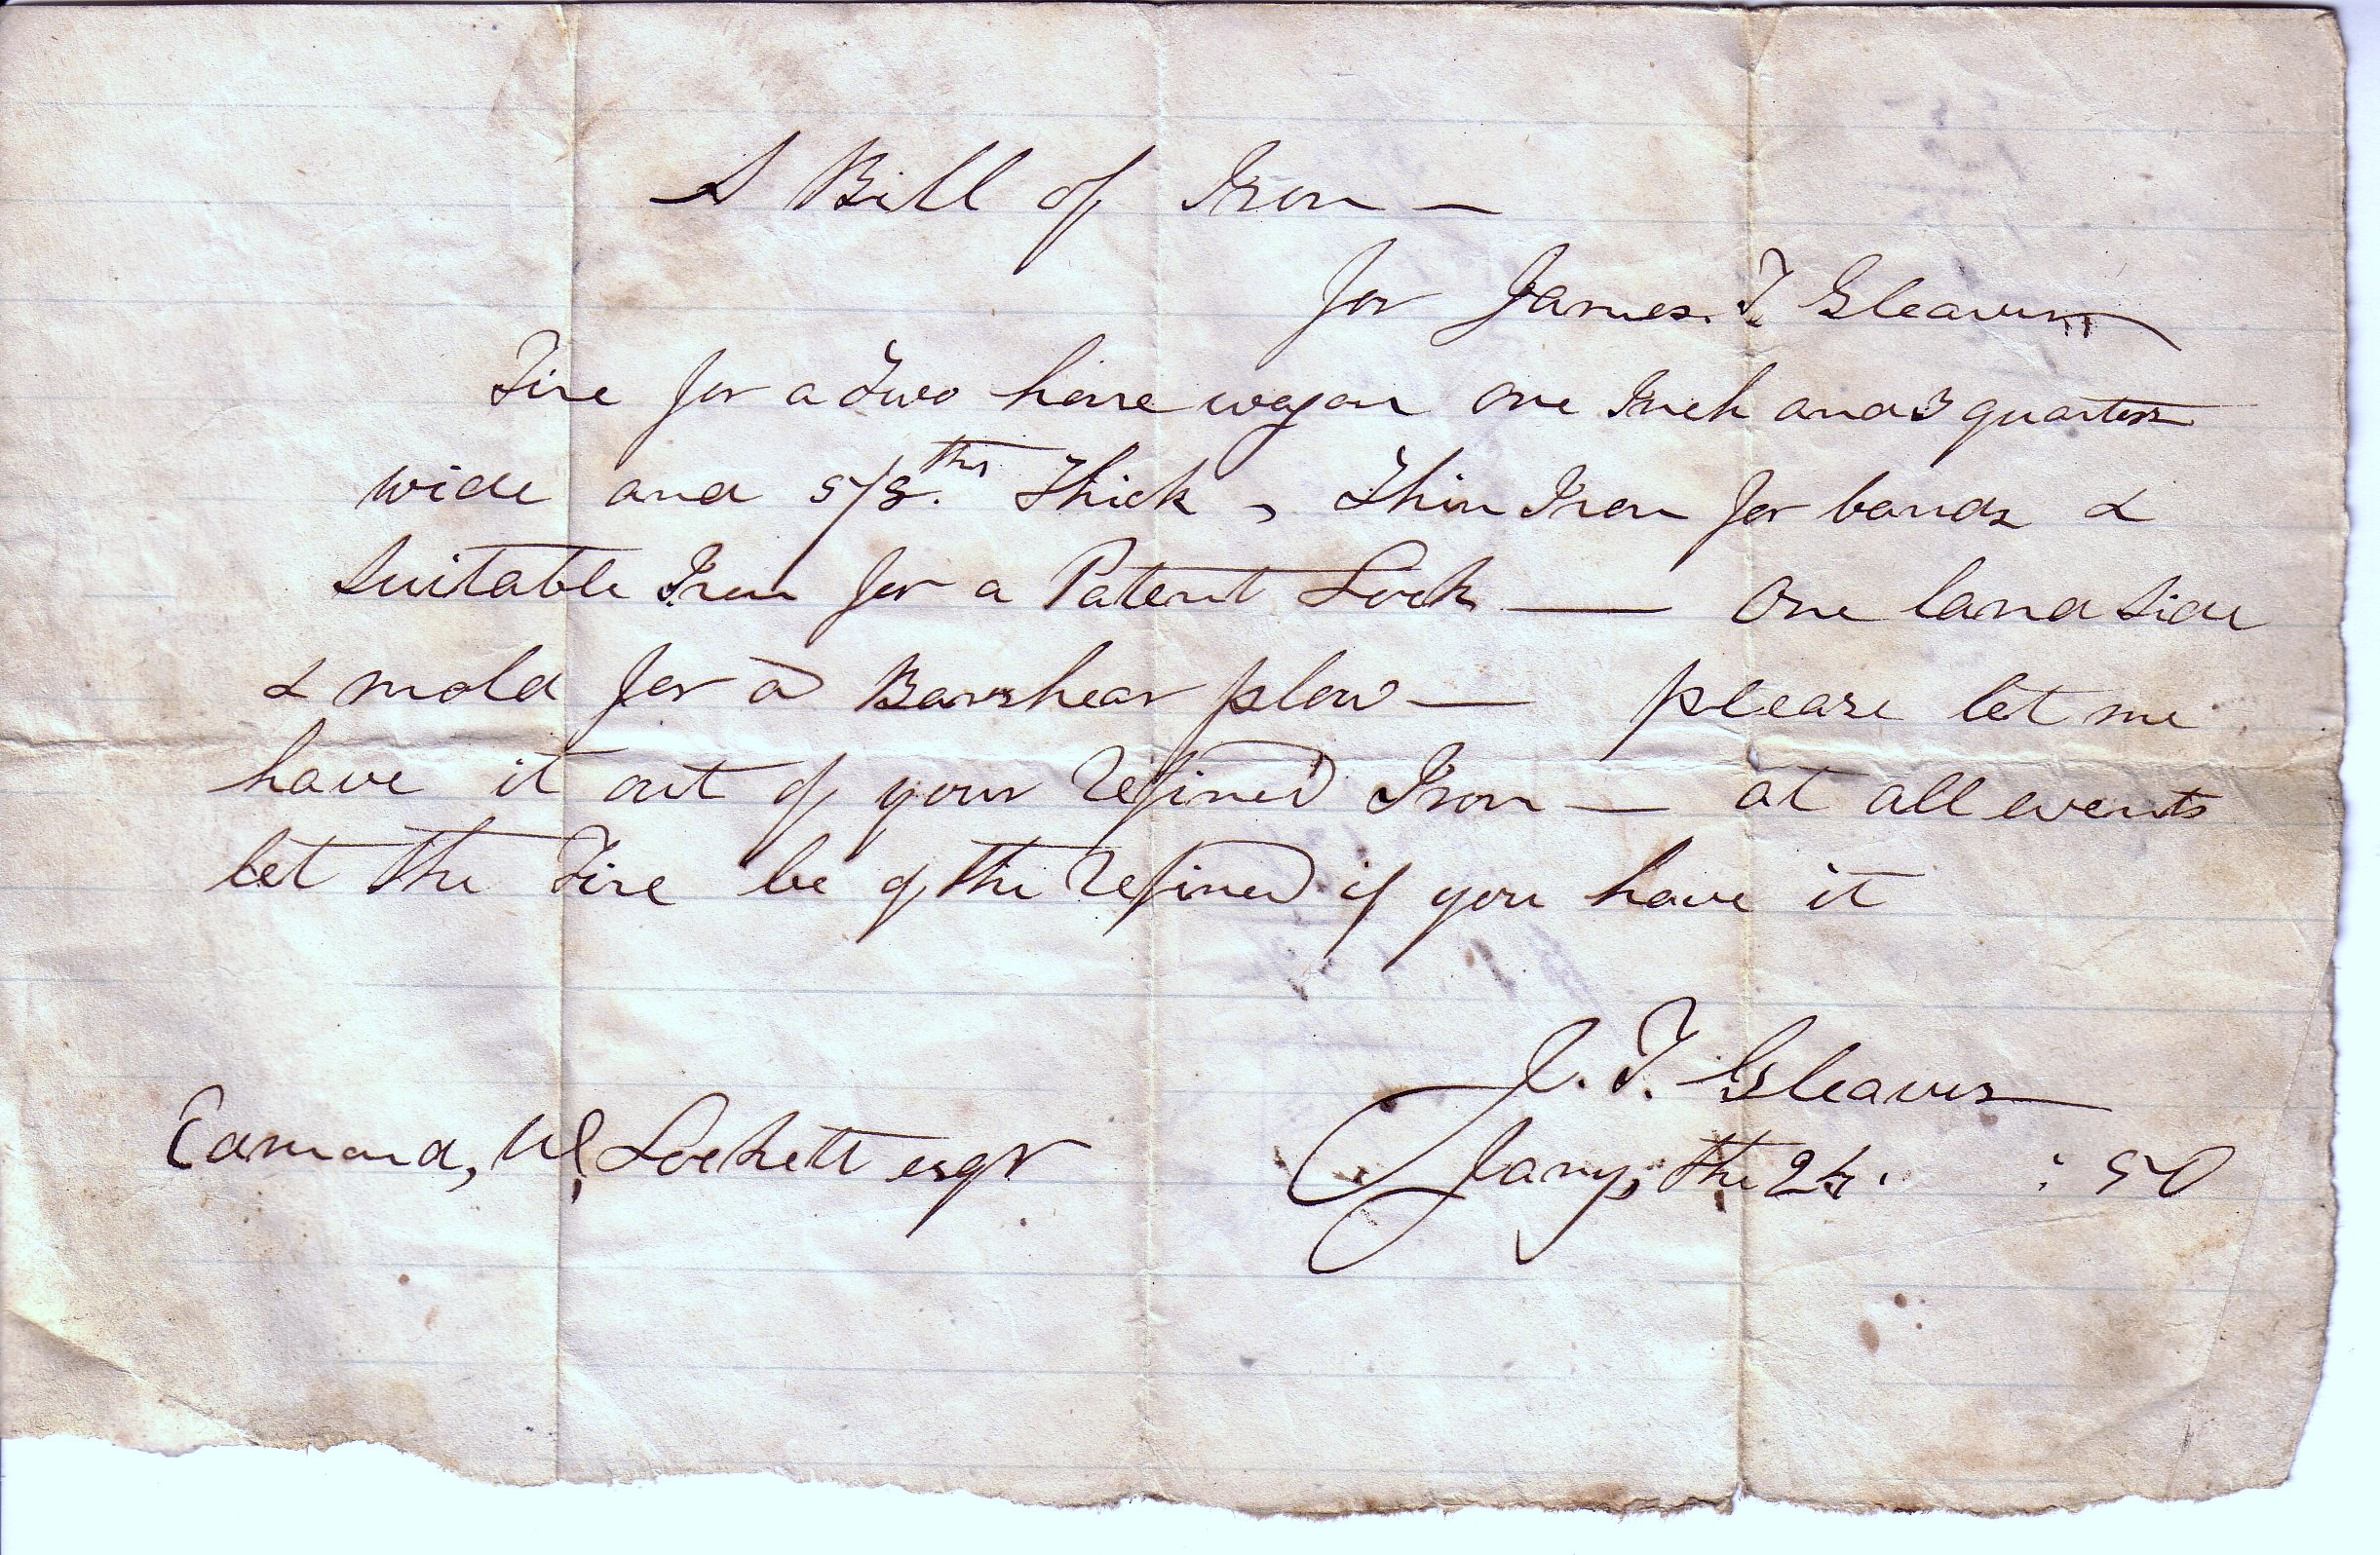 A Bill of Iron —
for James. T. Gleaves
Tire for a Two horse wagon one Inch and 3 quarters
wide and 5/8.ths Thick, Thin Iron for bands &
Suitable Iron for a Patent Lock — One land side
& mold for a Barshear plow — please let me
have it out of your refined Iron — at all events
let the Tire be of the refined if you have it
J. T. Gleaves
Edmond, W Lockett esqr
Jany, the 25. : 50